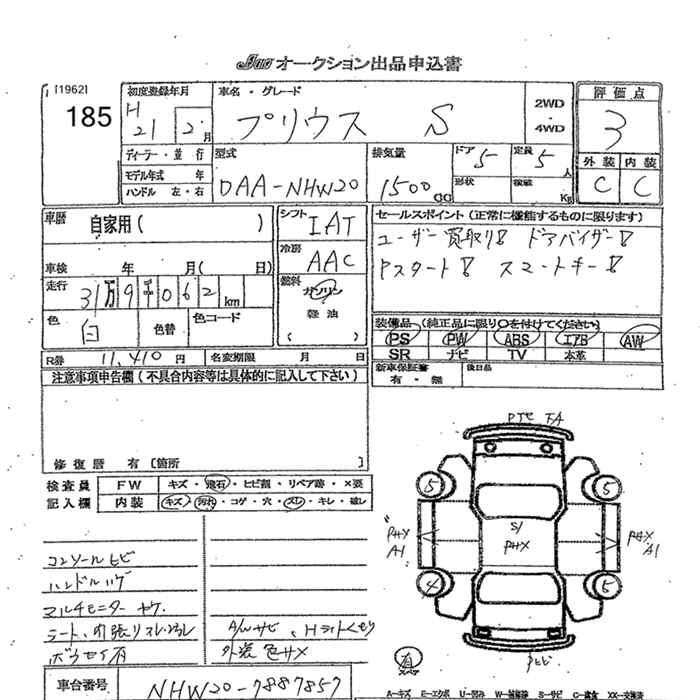 JAU オークション出品申込書
[1962]
185
初度登録年月
H
21 2 月
車名・グレード
プリウス S
2WD
・
4WD
評価点
3
外装 内装
C C
ディーラー・並行
モデル年式 年
ハンドル 左・右
型式
DAA-NHW20
排気量
1500 CC
ドア 5
形状
定員 5 人
積載 KG
車歴
自家用( )
車検 年 月( 日)
走行
31万9千062 km
色
白
色替
色コード
シフト
IAT
冷房
AAC
燃料
ガソリン
軽油
( )
セールスポイント(正常に機能するものに限ります)
ユーザー買取り!! ドアバイザー!!
Pスタート!! スマートキー!!
装備品(純正品に限り○を付けてください)
PS PW ABS エアB AW
SR ナビ TV 本革
R券 11,410 円 名変期限 月 日
新車保証書
有・無
後日品
注意事項申告欄(不具合内容等は具体的に記入して下さい)
修復歴 有 〔箇所 〕
検査員
記入欄
FW キズ・飛石・ヒビ割・リペア跡・×要
内装 キズ・汚れ・コゲ・穴・スレ・キレ・破レ
コンソールヒビ
ハンドルハゲ
マルチモニターヤケ
シート、内張りスレ、ヨゴレ
A/Wサビ、Hライトくもり
外装色サメ
車台番号 NHW20-7887857
5 5
4 5
S/
PHX
PHX
A1
PHX
A1
有
スペア
Pヒビ
A-キズ E-エクボ U-凹み W-補修跡 S-サビ C-腐食 XX-交換済